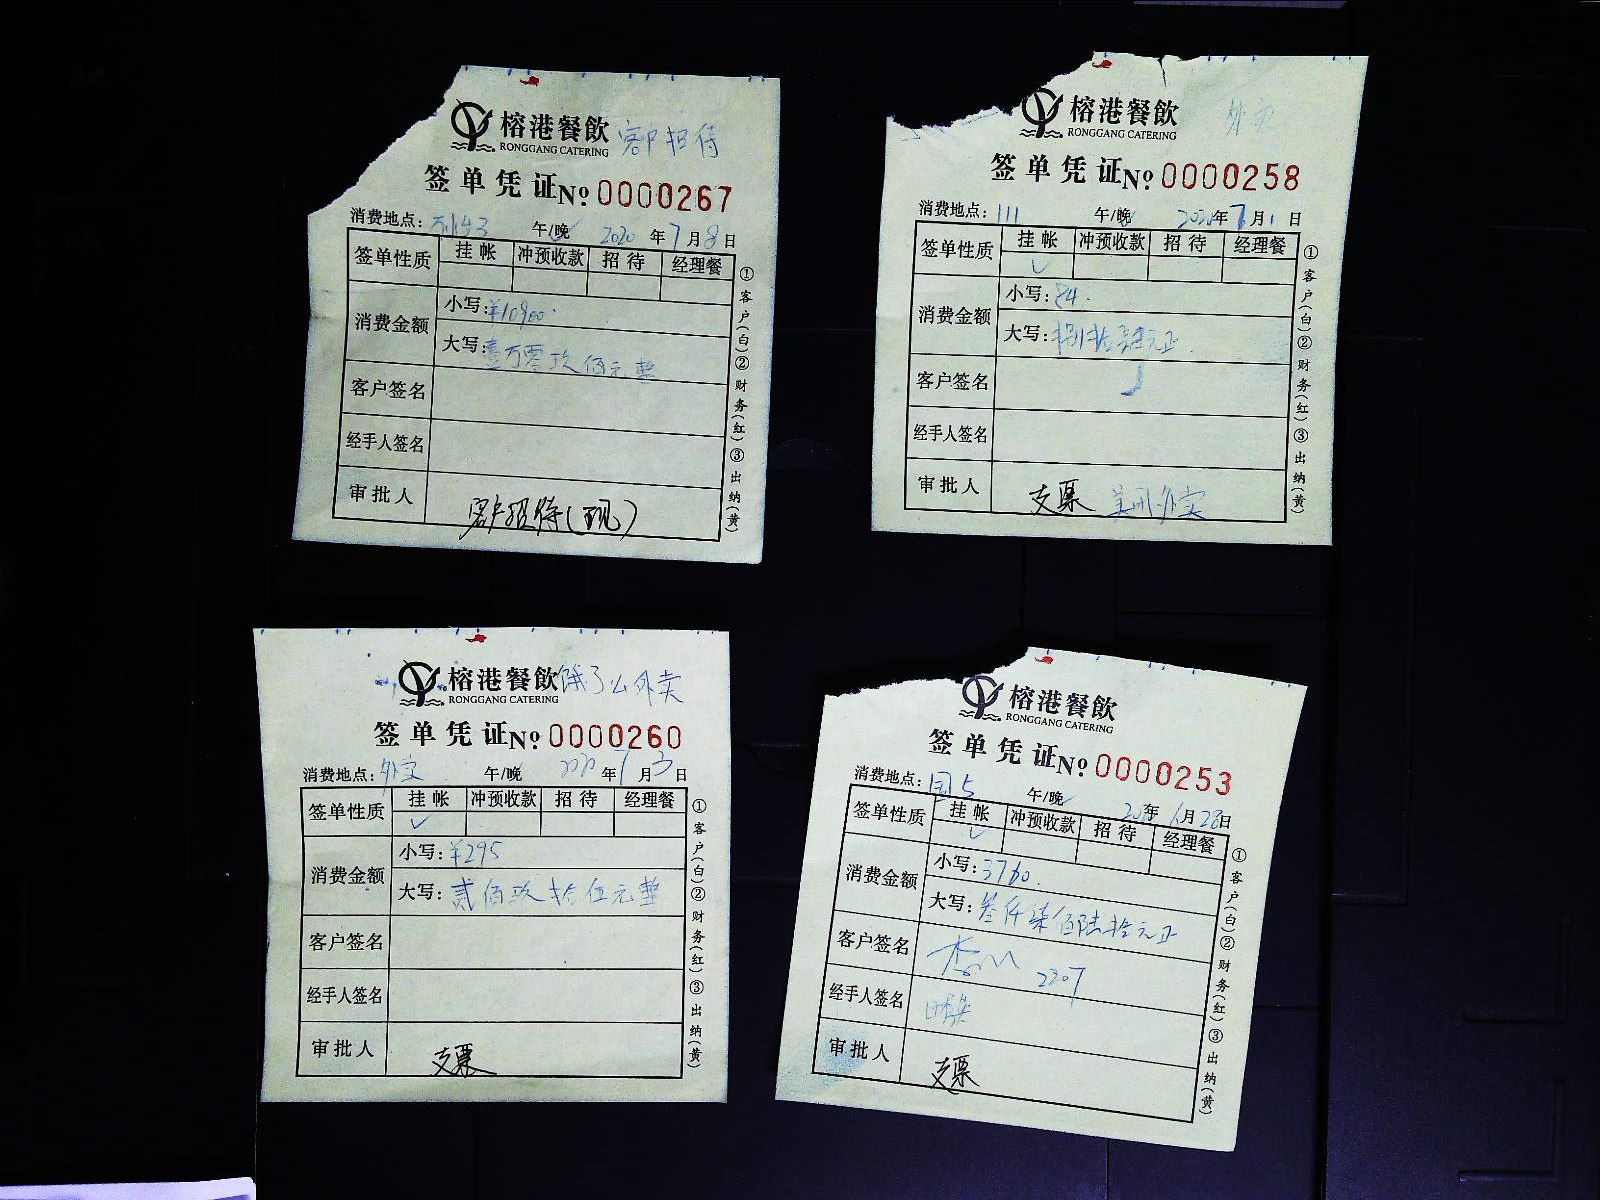 榕港餐飲 客户招待
RONGGANG CATERING
签单凭证 No 0000267
消费地点: 午/晚 2020年7月8日
签单性质 挂帐 冲预收款 招待 经理餐
消费金额 小写:¥10900.
大写:壹万零玖佰元整
客户签名
经手人签名
审批人 客户招待(现)
①客户(白)②财务(红)③出纳(黄)
榕港餐飲
RONGGANG CATERING
签单凭证 No 0000258
消费地点:111 午/晚 2020年7月1日
签单性质 挂帐 冲预收款 招待 经理餐
消费金额 小写:84.
大写:捌拾肆元正
客户签名
经手人签名
审批人 支票 美团外卖
①客户(白)②财务(红)③出纳(黄)
榕港餐飲 饿了么外卖
RONGGANG CATERING
签单凭证 No 0000260
消费地点:外卖 午/晚 2020年7月3日
签单性质 挂帐 冲预收款 招待 经理餐
消费金额 小写:¥295
大写:贰佰玖拾伍元整
客户签名
经手人签名
审批人 支票
①客户(白)②财务(红)③出纳(黄)
榕港餐飲
RONGGANG CATERING
签单凭证 No 0000253
消费地点:国5 午/晚 2020年6月28日
签单性质 挂帐 冲预收款 招待 经理餐
消费金额 小写:3760.
大写:叁仟柒佰陆拾元正
客户签名 2307
经手人签名
审批人 支票
①客户(白)②财务(红)③出纳(黄)